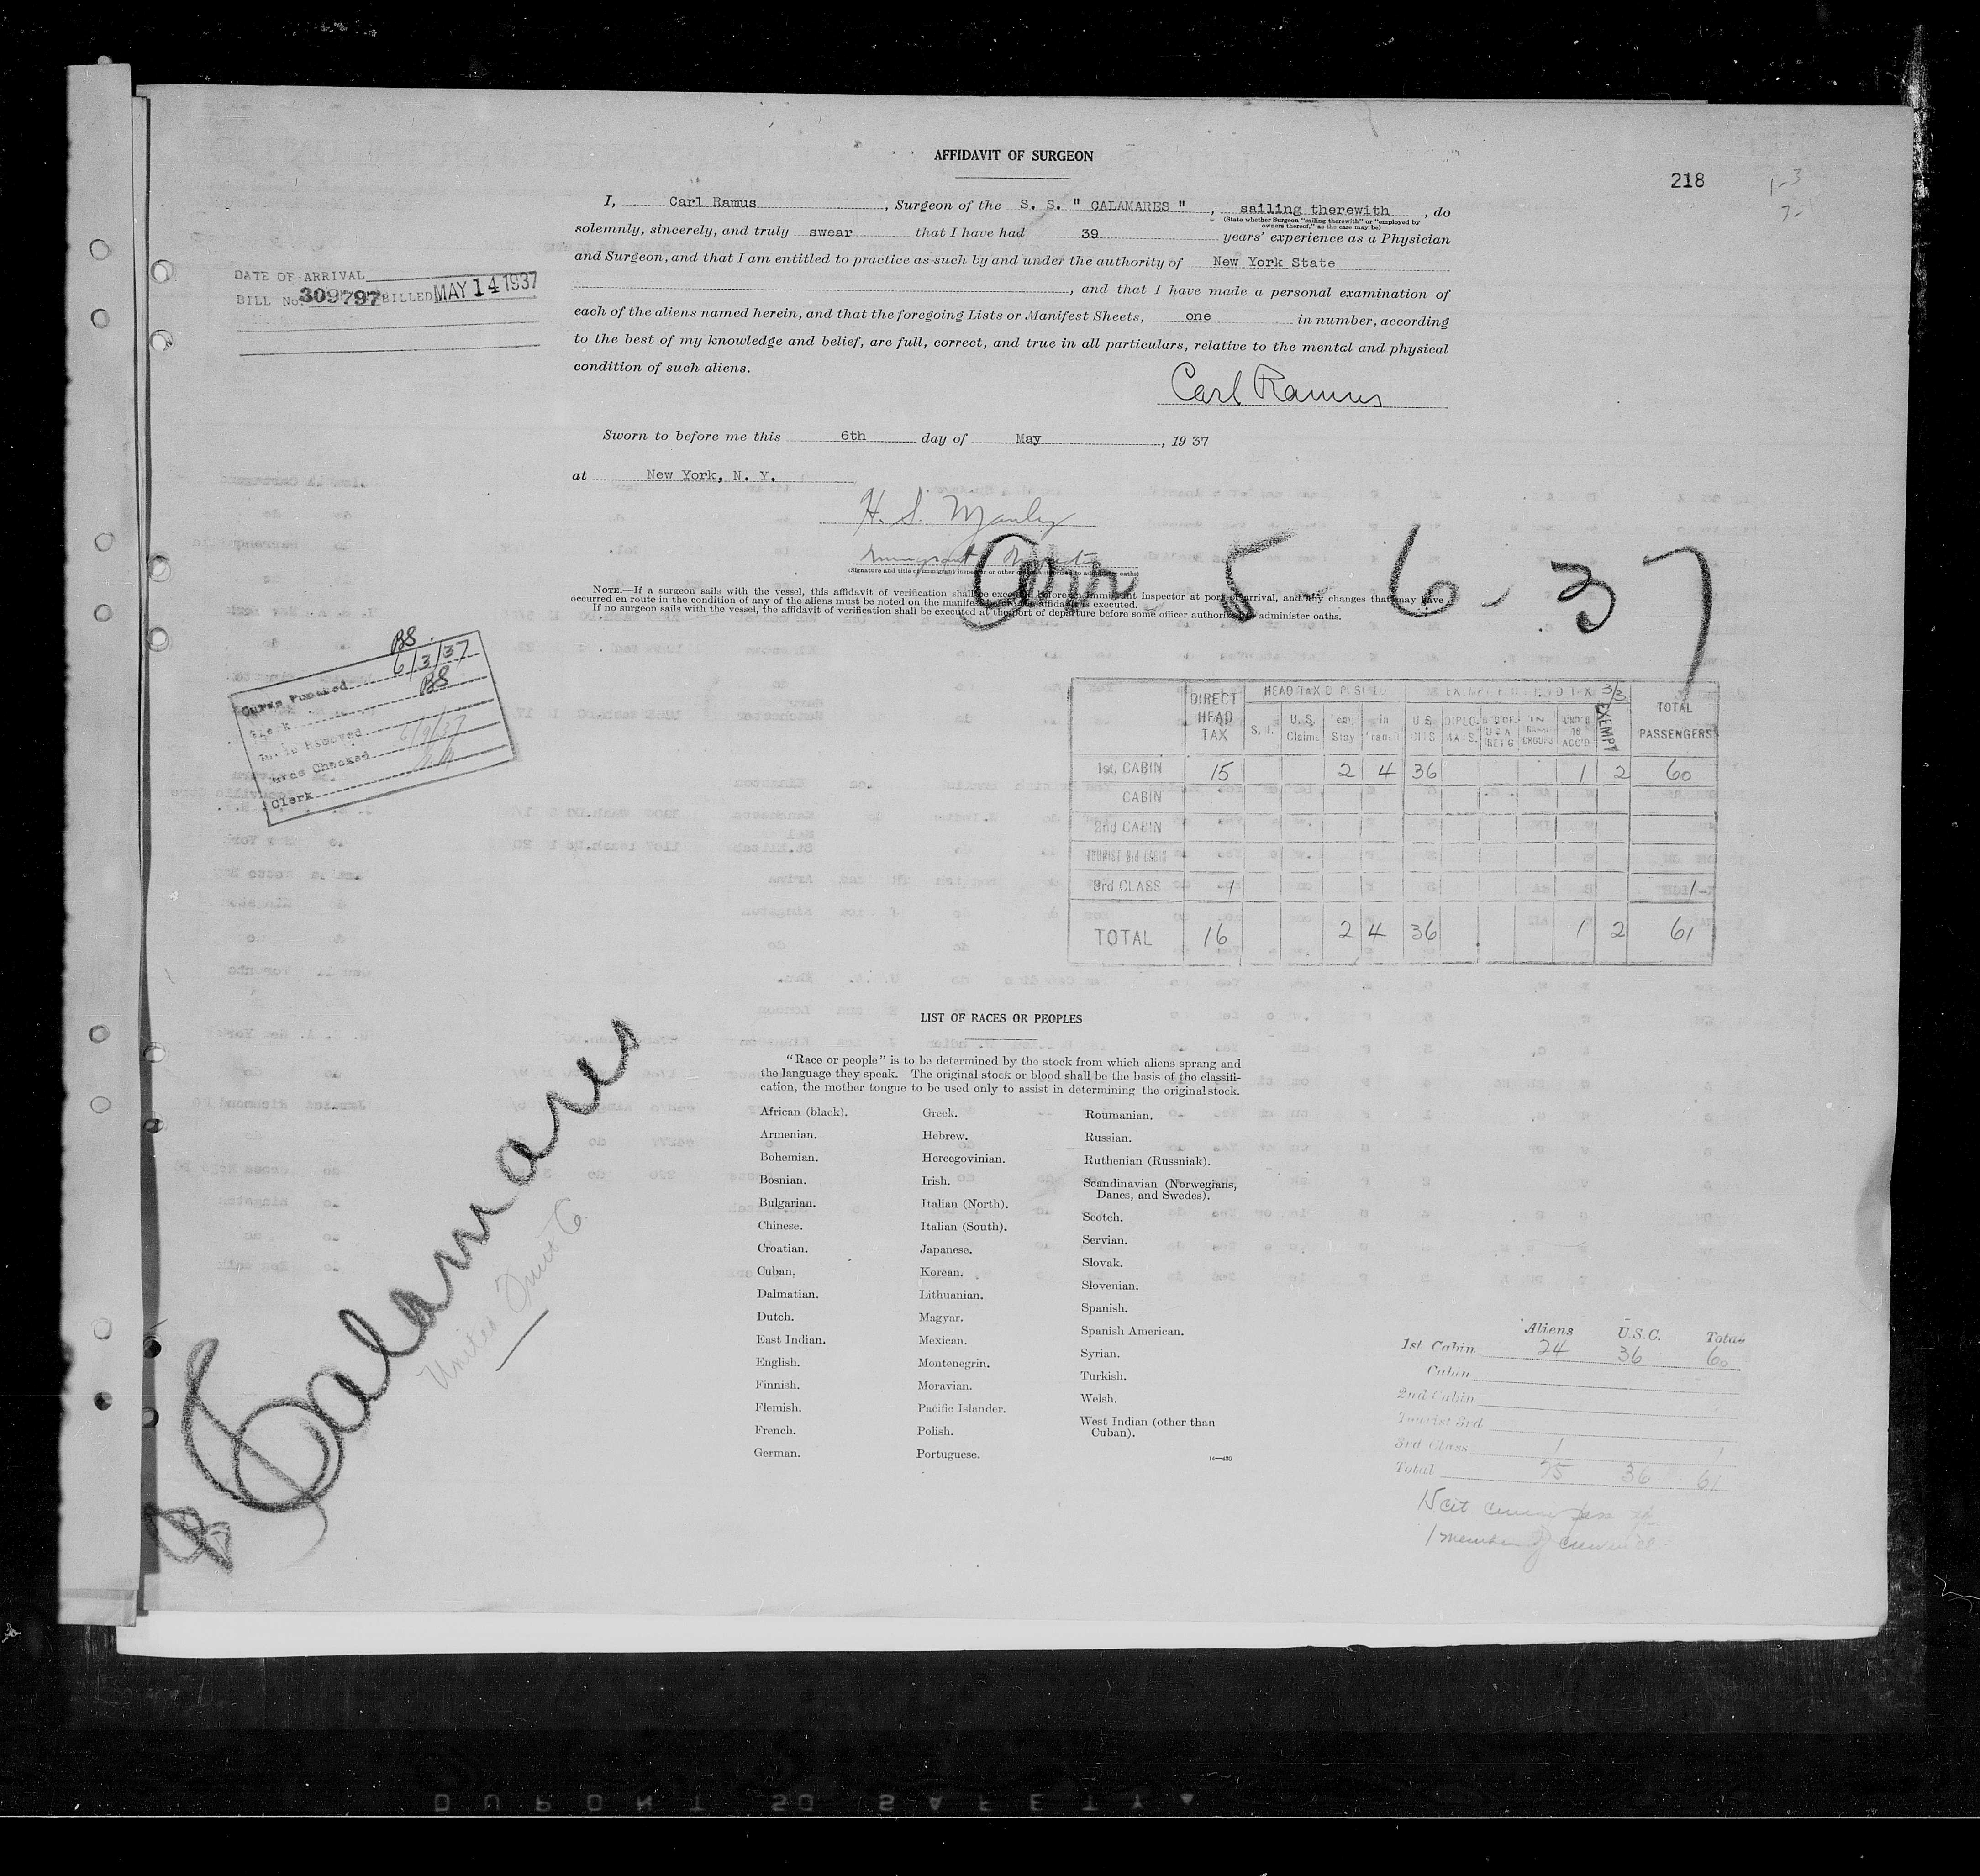 AFFIDAVIT OF SURGEON
218
1-3
I, Carl Ramus, Surgeon of the S. S. " CALAMARES ", sailing therewith, do
(State whether Surgeon "sailing therewith" or "employed by
owners thereof," as the case may be)
solemnly, sincerely, and truly swear that I have had 39 years' experience as a Physician
and Surgeon, and that I am entitled to practice as such by and under the authority of New York State
, and that I have made a personal examination of
each of the aliens named herein, and that the foregoing Lists or Manifest Sheets, one in number, according
to the best of my knowledge and belief, are full, correct, and true in all particulars, relative to the mental and physical
condition of such aliens.
Carl Ramus
DATE OF ARRIVAL
BILL No. 309797 BILLED MAY 14 1937
Sworn to before me this 6th day of May, 1937
at New York, N. Y.
H. S. Manley
(Signature and title of immigrant inspector or other officer authorized to administer oaths)
Arr 5-6-37
NOTE.—If a surgeon sails with the vessel, this affidavit of verification shall be executed before an immigrant inspector at port of arrival, and any changes that may have
occurred en route in the condition of any of the aliens must be noted on the manifest before this affidavit is executed.
If no surgeon sails with the vessel, the affidavit of verification shall be executed at the port of departure before some officer authorized to administer oaths.
BS
6/3/37
BS
Clerk
Checked
Clerk
DIRECT HEAD TAX
HEAD TAX DEPOSITED
3/3
TOTAL PASSENGERS
S. I. U. S. Claims Temp. Stay In Transit U.S. CITS DIPLOMATS UND'R 16 ACC'D EXEMPT
1st. CABIN 15 2 4 36 1 2 60
CABIN
2nd CABIN
TOURIST 3rd CABIN
3rd CLASS 1 1
TOTAL 16 2 4 36 1 2 61
LIST OF RACES OR PEOPLES
"Race or people" is to be determined by the stock from which aliens sprang and
the language they speak. The original stock or blood shall be the basis of the classifi-
cation, the mother tongue to be used only to assist in determining the original stock.
African (black).
Armenian.
Bohemian.
Bosnian.
Bulgarian.
Chinese.
Croatian.
Cuban.
Dalmatian.
Dutch.
East Indian.
English.
Finnish.
Flemish.
French.
German.
Greek.
Hebrew.
Hercegovinian.
Irish.
Italian (North).
Italian (South).
Japanese.
Korean.
Lithuanian.
Magyar.
Mexican.
Montenegrin.
Moravian.
Pacific Islander.
Polish.
Portuguese.
Roumanian.
Russian.
Ruthenian (Russniak).
Scandinavian (Norwegians,
Danes, and Swedes).
Scotch.
Servian.
Slovak.
Slovenian.
Spanish.
Spanish American.
Syrian.
Turkish.
Welsh.
West Indian (other than
Cuban).
Calamares
United Fruit Co
Aliens U.S.C. Total
1st Cabin 24 36 60
Cabin
2nd Cabin
Tourist 3rd
3rd Class 1 1
Total 25 36 61
1 member of crew
DUPONT SO SAFETY